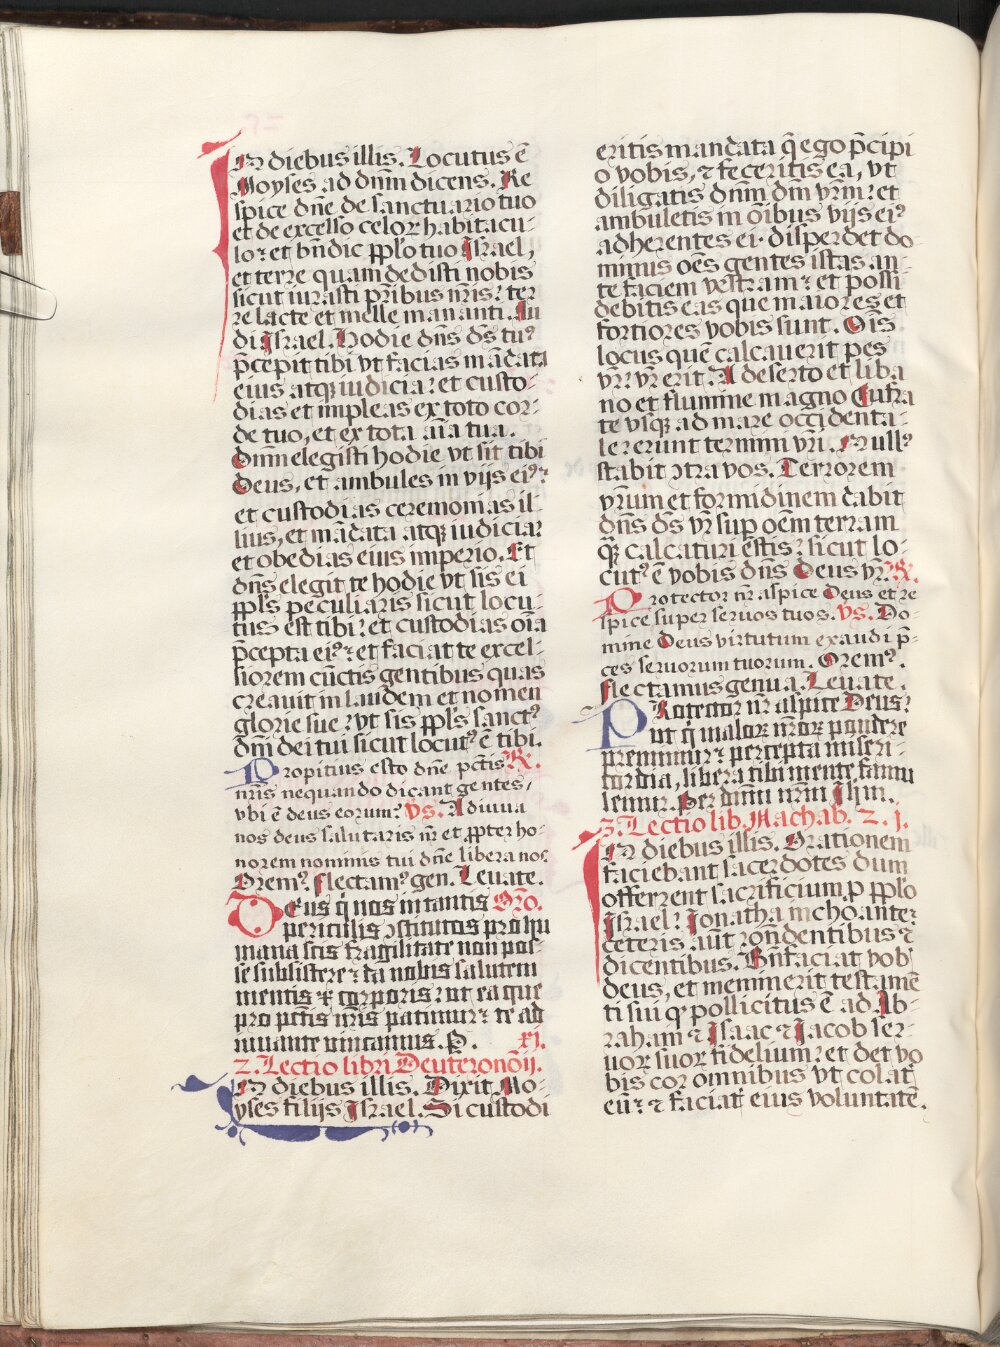 In diebus illis. Locutus ē
Moyses ad dnm̄ dicens. Re
spice dn̄e de sanctuario tuo
et de excelso celoꝝ habitacu-
lo: et bn̄dic pp̄lo tuo Israel,
et terre quam dedisti nobis
sicut iurasti pr̄ibus nr̄is: ter
re lacte et melle mananti. Au
di Israel. Hodie dn̄s ds̄ tuꝰ
p̄cepit tibi vt facias mādata
eius atqꝫ iudicia: et custo-
dias et impleas ex toto cor-
de tuo, et ex tota aīa tua.
Dnm̄ elegisti hodie vt sit tibi
Deus, et ambules in vijs eiꝰ:
et custodias ceremonias il-
lius, et mādata atqꝫ iudicia:
et obedias eius imperio. Et
dn̄s elegit te hodie vt sis ei
pp̄ls peculiaris sicut locu-
tus est tibi: et custodias oīa
p̄cepta eiꝰ: et faciat te excel-
siorem cūctis gentibus quas
creauit in laudem et nomen
glorie sue: vt sis pp̄ls sanctꝰ
dn̄i dei tui sicut locutꝰ ē tibi.
Propitius esto dn̄e pc̄tis ℟.
nr̄is nequando dicant gentes,
vbi ē deus eorum: Vs. Adiuua
nos deus salutaris nr̄ et ꝓpter ho-
norem nominis tui dn̄e libera nos
Oremꝰ. flectamꝰ gen. Leuate.
Deus q̄ nos in tantis Orō.
periculis ↄstitutos pro hu
mana scis fragilitate non pos-
se subsistere: da nobis salutem
mentis et corporis: ut ea que
pro pctīs nr̄is patimur: te ad
iuuante vincamus. P. xj.
2. Lectio libri Deuteronōij.
In diebus illis. Dixit Mo-
yses filijs Israel. Si custodi
eritis mandata q̄ ego p̄cipi
o vobis, ⁊ feceritis ea, vt
diligatis dnm̄ dm̄ vrm̄: et
ambuletis in oībus vijs eiꝰ
adherentes ei. disperdet do-
minus oēs gentes istas an-
te faciem vestram: et possi
debitis eas que maiores et
fortiores vobis sunt. Oīs
locus quē calcauerit pes
vr̄: vr̄ erit. A deserto et liba
no et flumine magno Eufra
te vsqꝫ ad mare occidenta-
le: erunt termini vr̄i. Nullꝰ
stabit ↄtra vos. Terrorem
vrūm et formidinem dabit
dn̄s ds̄ vr̄ sup oēm terram
q̄ꝫ calcaturi estis: sicut lo-
cutꝰ ē vobis dn̄s Deus vr̄. ℟.
Protector nr̄ aspice Deus et re
spice super seruos tuos. Vs. Do-
mine Deus virtutum exaudi p̄-
ces seruorum tuorum. Oremꝰ.
flectamus genua. Leuate.
Protector nr̄ aspice Deus:
ut q̄ maloꝝ nr̄oꝝ pondere
premimur: percepta miseri-
cordia, libera tibi mente famu
lemur. Per dnm̄ nrm̄ Ihm.
3. Lectio lib. Machab. 2. j.
In diebus illis. Orationem
faciebant sacerdotes dum
offerrent sacrificium p pp̄lo
Israel: Jonatha inchoante:
ceteris aūt rōndentibus ⁊
dicentibus. Bn̄faciat vob
deus, et meminerit testamē
ti sui qꝫ pollicitus ē ad Ab-
raham ⁊ Isaac ⁊ Jacob ser-
uoꝝ suoꝝ fidelium: et det vo
bis cor omnibus vt colat
eū: ⁊ faciat eius voluntatē.